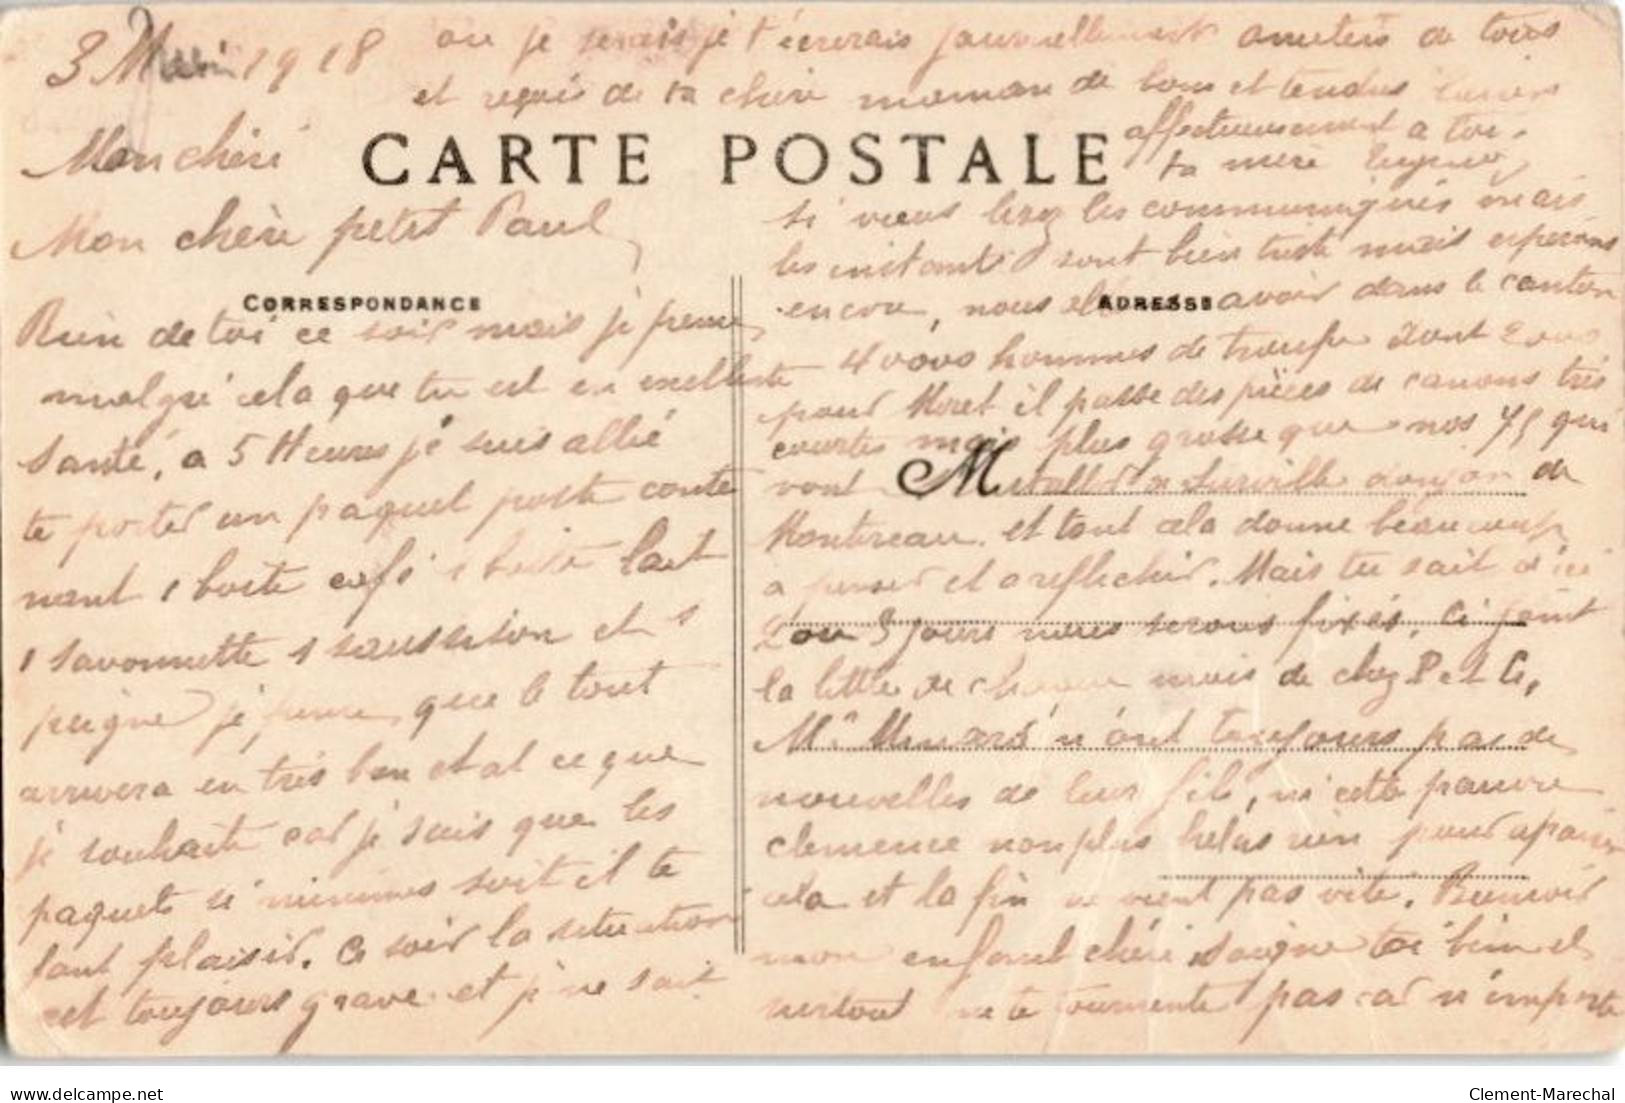 3 1918
Mon chéri
CARTE POSTALE
Mon chère petit Paul
CORRESPONDANCE
Rien de toi ce soir mais je pense
malgré cela que tu est en exellente
santé, a 5 Heures je suis allé
te porter un paquet poste conte
nant 1 boite café 1 boite lait
1 savonnette 1 saussison et 1
peigne je pense que le tout
arrivera en très bon etat ce que
je souhaite car je sais que les
paquets si minimes soit il te
font plaisir. Ce soir la situation
est toujours grave et je ne sait
ADRESSE
si vous lisez les communiqués mais
les instants sont bien triste mais esperons
encore, nous avoir dans le canton
40000 hommes de troupe dont 2000
pour Moret il passe des pièces de canons très
courtes mais plus grosse que nos 75 qui
vont M Surville donjon de
Montereau. et tout cela donne beaucoup
a penser et a reflechir. Mais tu sait d'ici
2 ou 3 jours nous serons fixés. Ci joint
la lettre de chaque mois de chez P et C,
Mr n'ont toujours pas de
nouvelles de leur fils, ni cette pauvre
clemence non plus helas rien pour apaiser
cela et la fin ne vient pas vite. Bonsoir
mon enfant chéri soigne toi bien et
surtout ne te tourmente pas car n'importe
ou je serais je t'ecrerais journellement amitiés de tous
et reçois de ta chère maman de bons et tendres baisers
affectueusement a toi.
ta mère
Clement-Marechal
delcampe.net